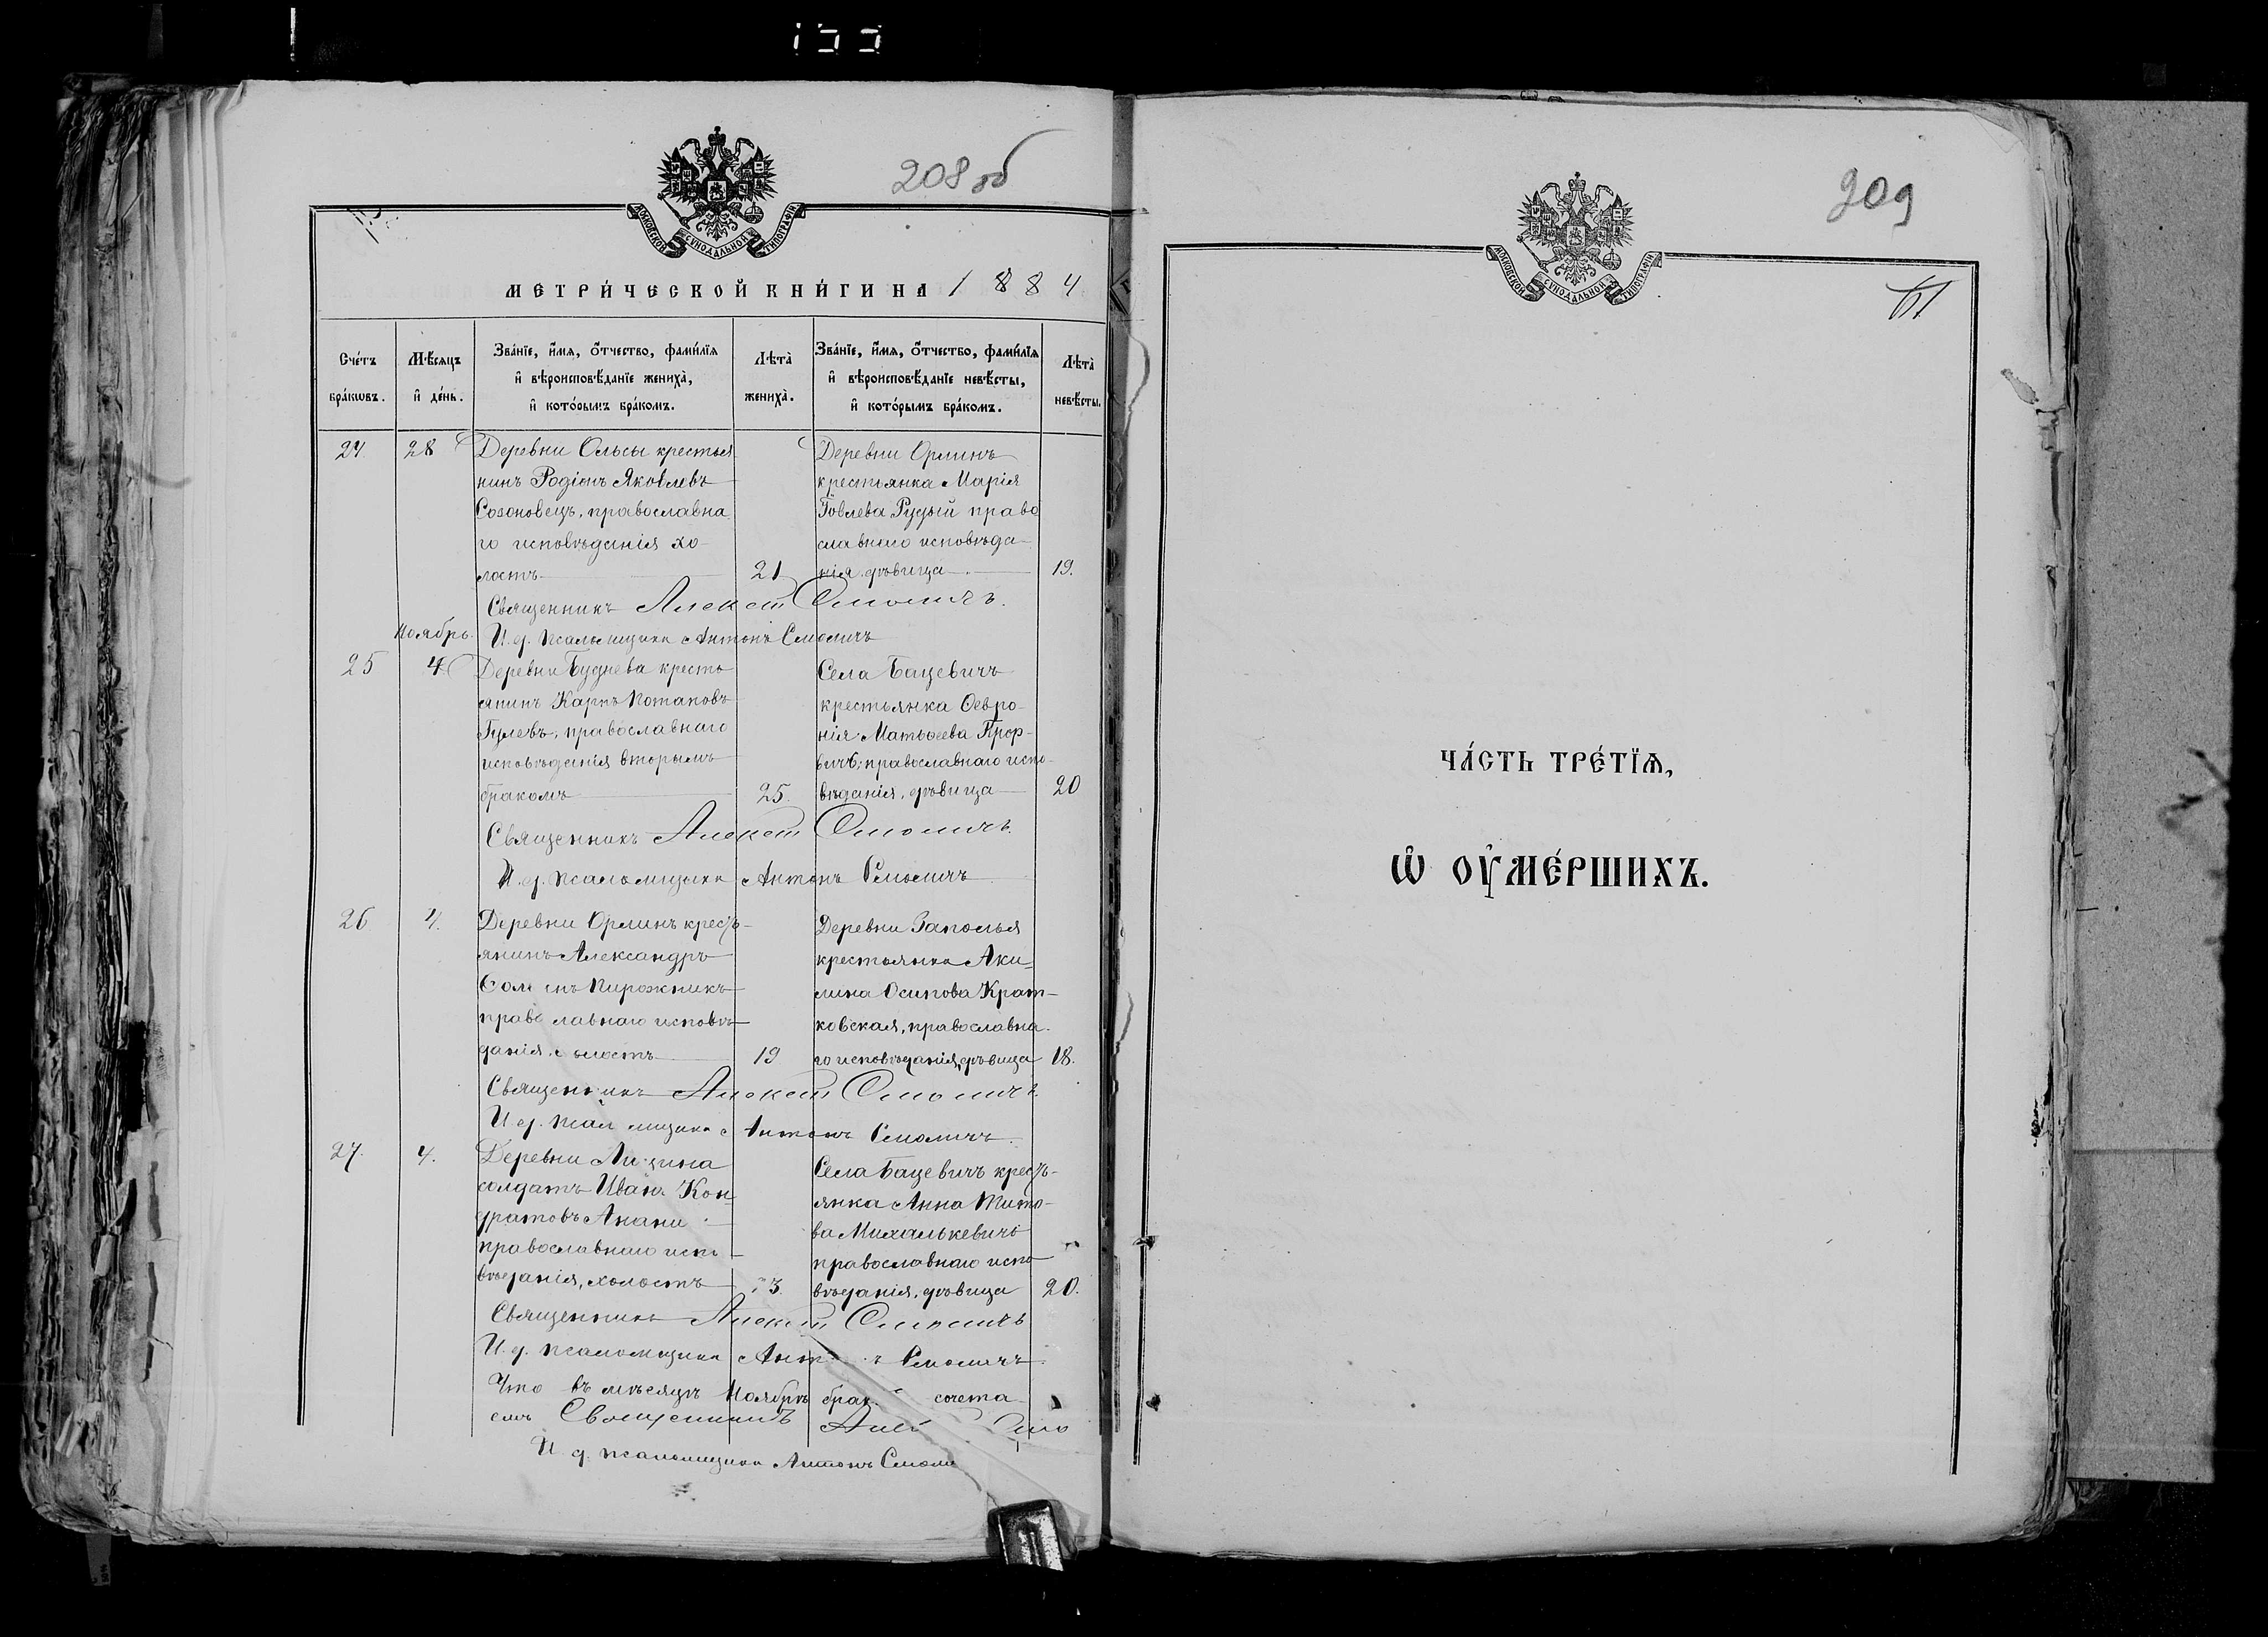 208 об
МОСКОВСКОЙ СѴНОДАЛЬНОЙ ТИПОГРАФІИ
МЕТРИ́ЧЕСКОЙ КНИ́ГИ НА 1884
Сче́тъ бра́кωвъ.
Мѣ́сяцъ и҆ де́нь.
Зва́нїе, и҆́мѧ, ѻ҆́тчество, фами́лїѧ
и҆ вѣроисповѣ́данїе жениха̀,
и҆ кото́рымъ бра́комъ.
Лѣта̀ жениха̀.
Зва́нїе, и҆́мѧ, ѻ҆́тчество, фами́лїѧ
и҆ вѣроисповѣ́данїе невѣ́сты,
и҆ кото́рымъ бра́комъ.
Лѣта̀ невѣ́сты.
24. 28
Деревни Ольсы крестья
нинъ Родіонъ Яковлевъ
Созоновецъ, православна
го исповѣданія хо-
лостъ 21
Деревни Орлинъ
крестьянка Марія
Іовлева Рудый право
славнаго исповѣда-
нія, дѣвица 19.
Священникъ Алексѣй Смоличъ.
И. д. псаломщика Антонъ Смоличъ
Ноябрь.
25 4
Деревни Буднева кресть
янинъ Карпъ Потаповъ
Гулевъ, православнаго
исповѣданія вторымъ
бракомъ 25.
Села Бацевичъ
крестьянка Ѳевро-
нія Матѳеева
православнаго испо-
вѣданія, дѣвица 20
Священникъ Алексѣй Смоличъ.
И. д. псаломщика Антонъ Смоличъ
26 4.
Деревни Орлинъ кресть-
янинъ Александръ
Пирожникъ
исповѣ-
данія, 19
Деревни Заполья
крестьянка Аки-
лина Осипова Крат-
ковская, православна-
го исповѣданія, дѣвица 18.
Священникъ Алексѣй Смоличъ
И. д. Антонъ Смоличъ.
27. 4.
Деревни
солдатъ Иванъ Кон
дратовъ
православнаго испо-
вѣданія, холостъ
Села Бацевичъ кресть-
янка Анна Тито-
ва Михалькевичъ
православнаго испо
вѣданія, дѣвица 20.
Священникъ Алексѣй Смоличъ
И. д. псаломщика Смоличъ.
Что въ мѣсяцѣ Ноябрѣ
Священникъ
И. д. псаломщика Антонъ
209
МОСКОВСКОЙ СѴНОДАЛЬНОЙ ТИПОГРАФІИ
ЧА́СТЬ ТРЕ́ТЇѦ,
Ѽ ОУ҆МЕ́РШИХЪ.